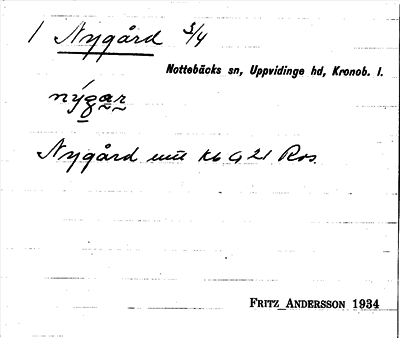 1 Nygård 3/4
Nottebäcks sn, Uppvidinge hd, Kronob. l.
nýgar
Nygård utt kb G 21 Ros.
FRITZ ANDERSSON 1934